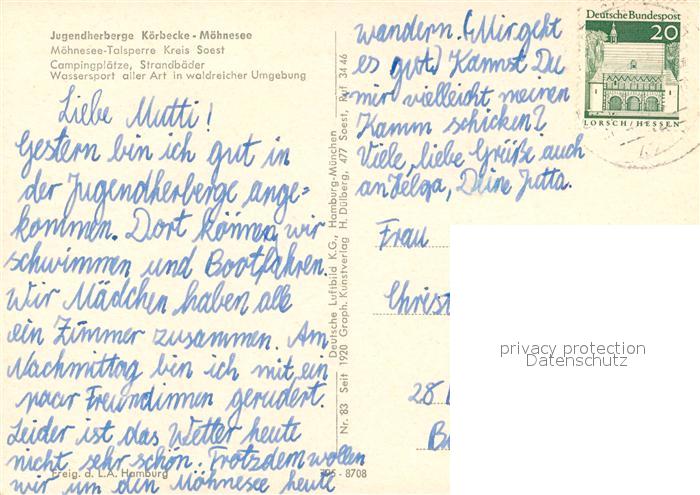 Jugendherberge Körbecke - Möhnesee
Möhnesee-Talsperre Kreis Soest
Campingplätze, Strandbäder
Wassersport aller Art in waldreicher Umgebung
Liebe Mutti!
Gestern bin ich gut in
der Jugendherberge ange=
kommen. Dort können wir
schwimmen und Bootfahren.
Wir Mädchen haben alle
ein Zimmer zusammen. Am
Nachmittag bin ich mit ein
paar Freundinnen gerudert.
Leider ist das Wetter heute
nicht sehr schön. Trotzdem wollen
wir um den Möhnesee heute
Freig. d. L.A. Hamburg
795 - 8708
Deutsche Luftbild K.G., Hamburg-München
Nr. 83 Seit 1920 Graph. Kunstverlag H. Dülberg, 477 Soest, Ruf 34 46
wandern. (Mir geht
es gut) Kannst Du
mir vielleicht meinen
Kamm schicken?
Viele, liebe Grüße auch
an Helga, Deine Jutta.
Deutsche Bundespost
20
LORSCH/HESSEN
Frau
Christ
28
privacy protection
Datenschutz